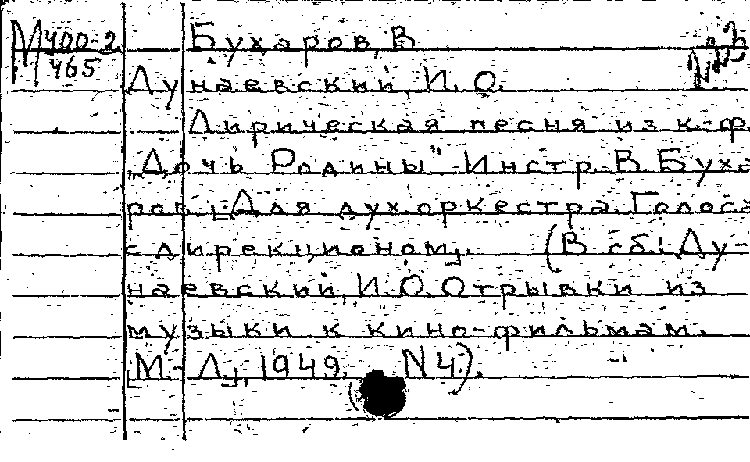 М400-2
465
Бухаров, В
Дунаевский, И. О.
Лирическая песня из к-ф
"Дочь Родины" Инстр. В. Буха
ров [Для дух. оркестра. Голоса
с дирекционом]. (В сб.: Ду-
наевский, И. О. Отрывки из
музыки к кино-фильмам.
[М.-Л.], 1949. N 4).